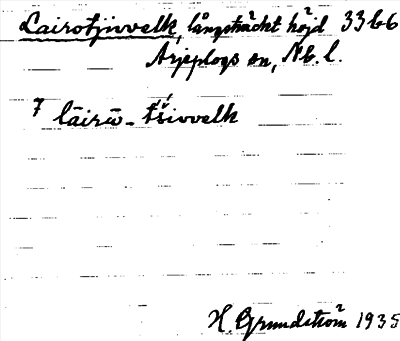 Lairotjivvelk, långsträckt höjd 33 b6
Arjeplogs sn, Nb. l.
7 lāirω̄ - tšivvelk
H. Grundström 1935